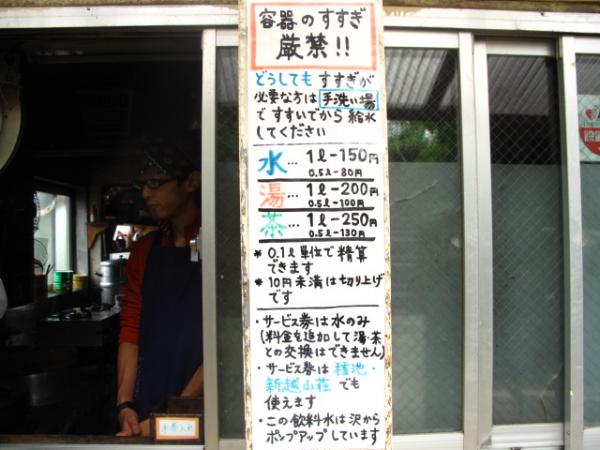 容器のすすぎ
厳禁!!
どうしてもすすぎが
必要な方は手洗い場
ですすいでから給水
してください
水…1ℓ-150円
0.5ℓ-80円
湯…1ℓ-200円
0.5ℓ-100円
茶…1ℓ-250円
0.5ℓ-130円
*0.1ℓ単位で精算
できます
*10円未満は切り上げ
です
・サービス券は水のみ
(料金を追加して湯・茶
との交換はできません)
・サービス券は種池・
新越山荘でも
使えます
・この飲料水は沢から
ポンプアップしています